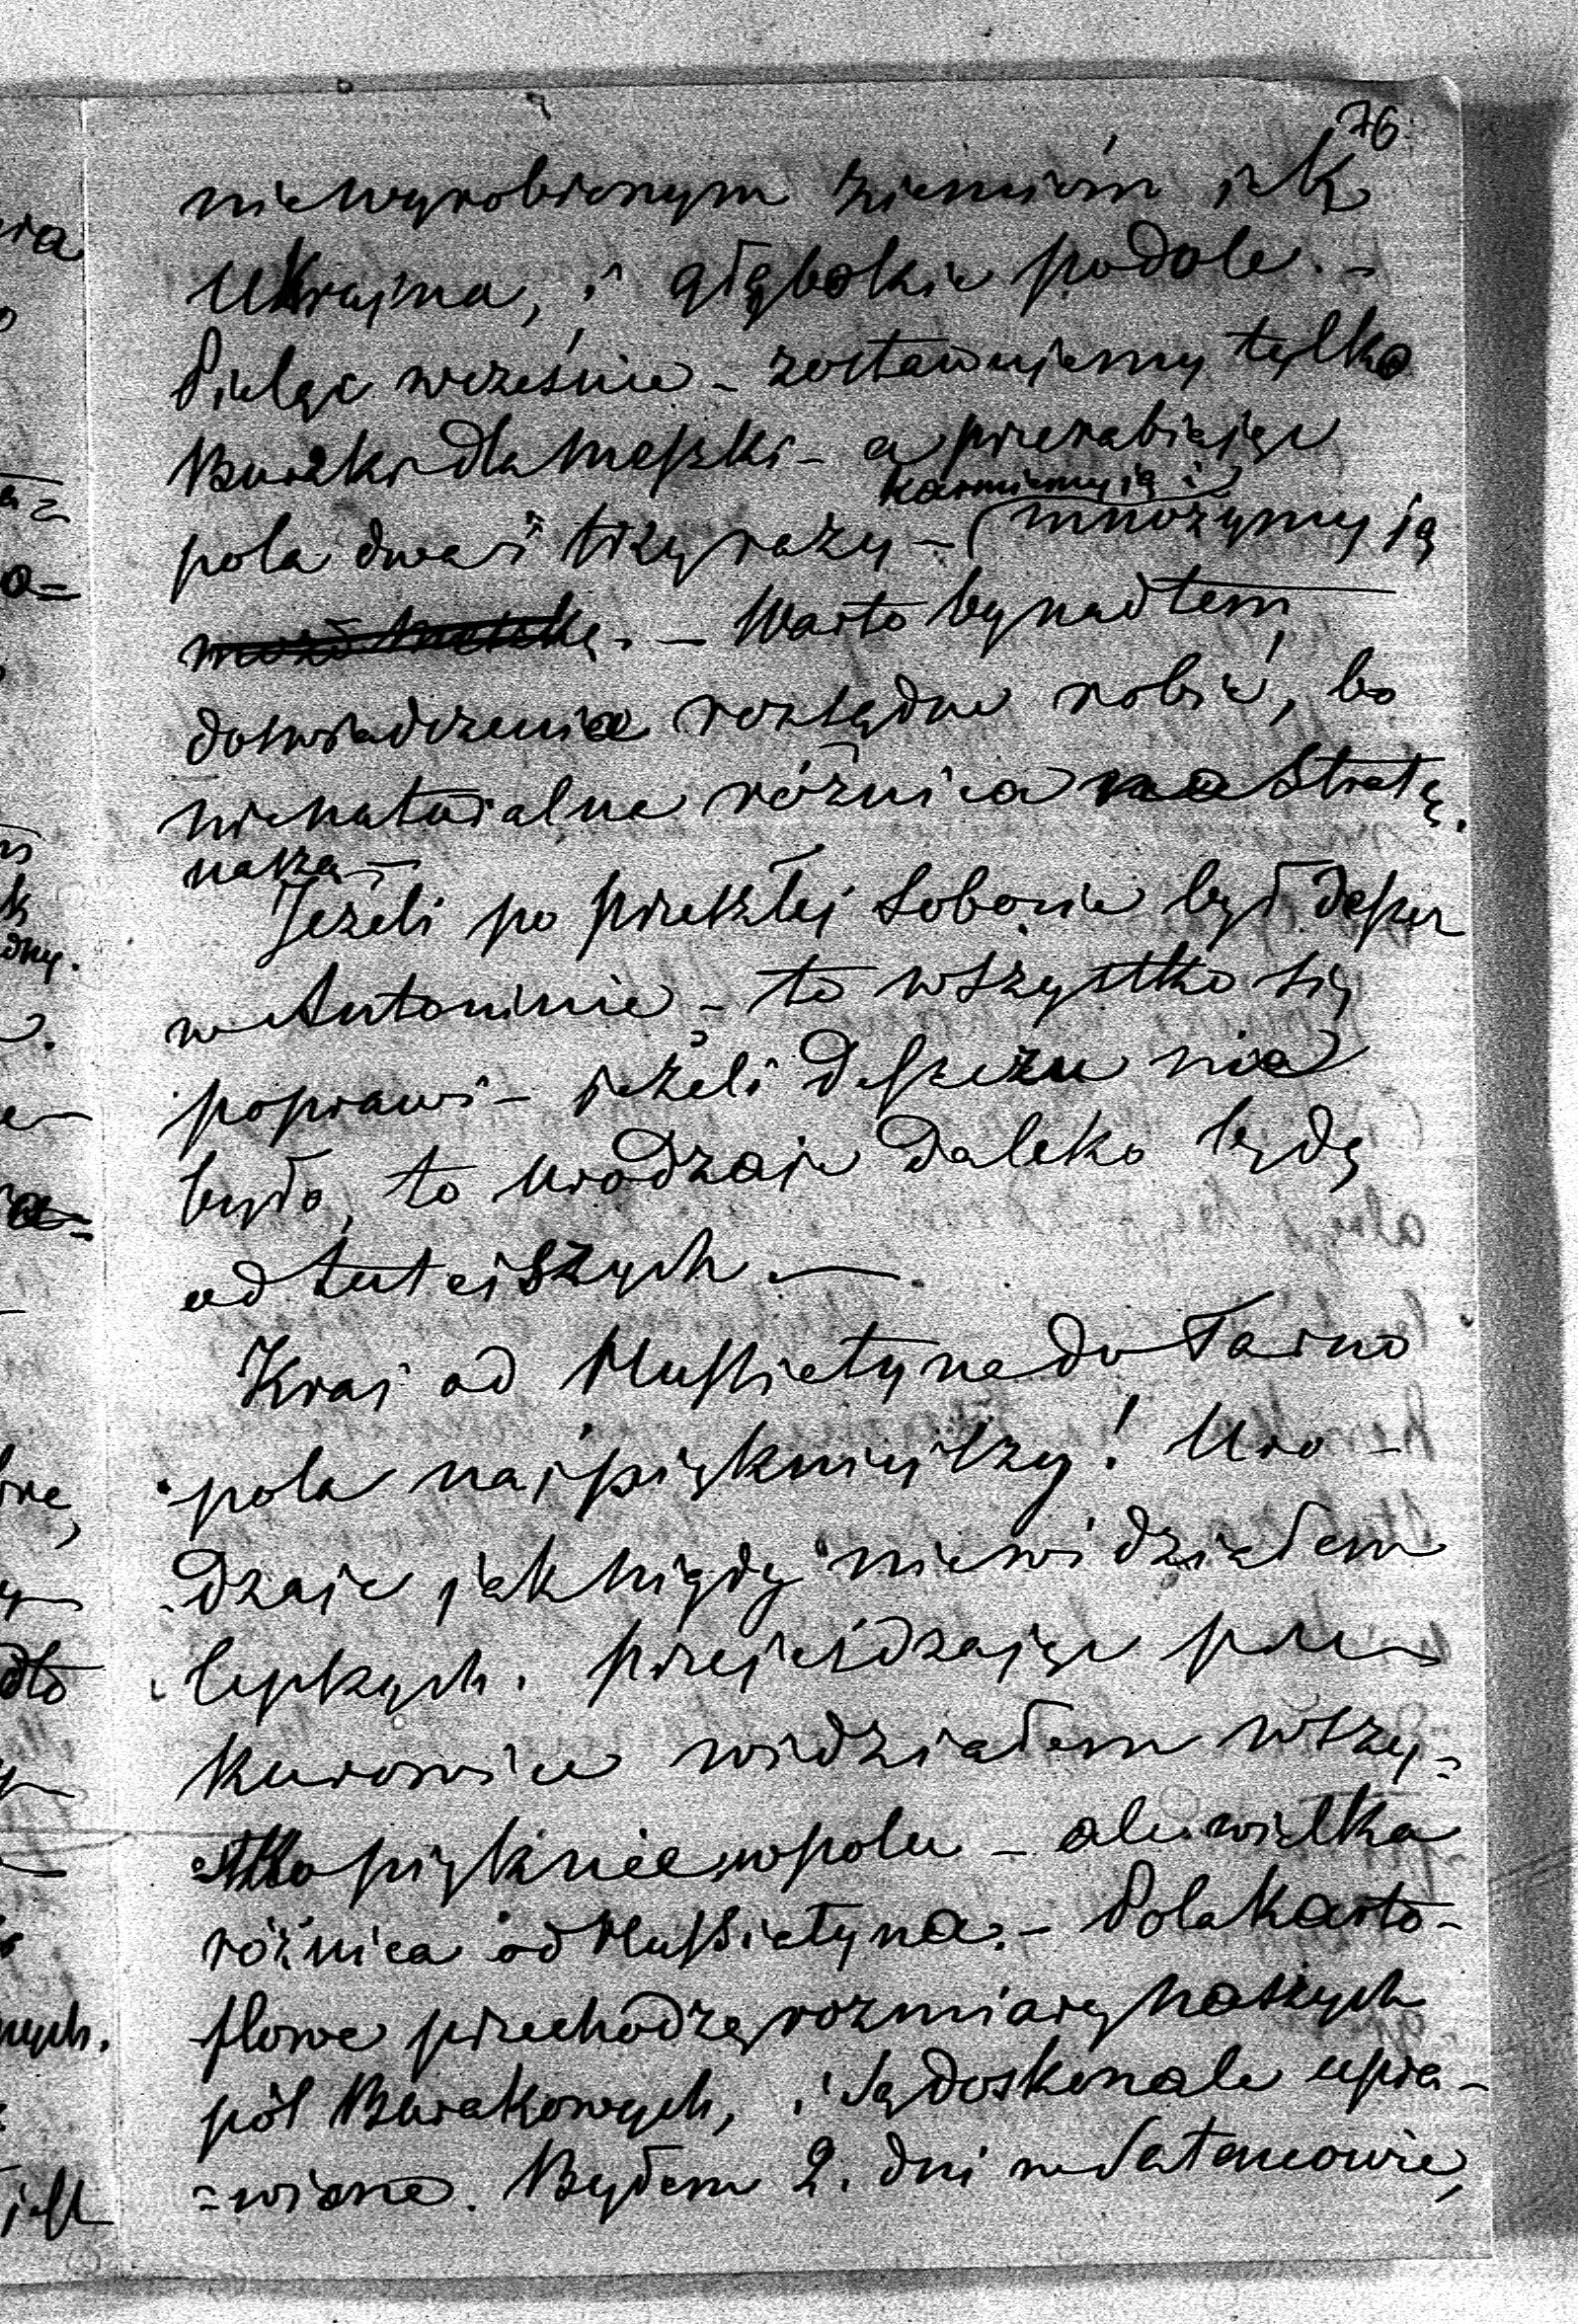 76
niewyrobionym ziemiom jak
Ukrajna, i głębokie podole. -
Pieląc wcześnie - zostawujemy tylko
Buraki dla meszki - a przerabiając
karmiemy ją i
pola dwa i trzy razy - mnożymy ją
- Warto by nad tem
doswiadczenia rozsądne robić, bo
nienaturalna różnica na Stratę
naszą -
Jeżeli po przeszłej Sobocie był deszcz
w Antoninie - to wszystko się
poprawi - jeżeli deszczu nie
było, to urodzaje daleko będą
od tuteiszych -
Kraj od Hussiatyna do Tarno
pola najpiękniejszy! Uro-
dzaje jak nigdy niewidziałem
lepszych. Przejeżdzając przez
Kurowice widziałem wszy-
stko pięknie w polu - ale wielka
różnica od Hussiatyna. - Pola karto-
flowe przechodzą rozmiary naszych
pól Burakowych, i są doskonale upra-
=wione. Byłem 2. dni w Satanowie,